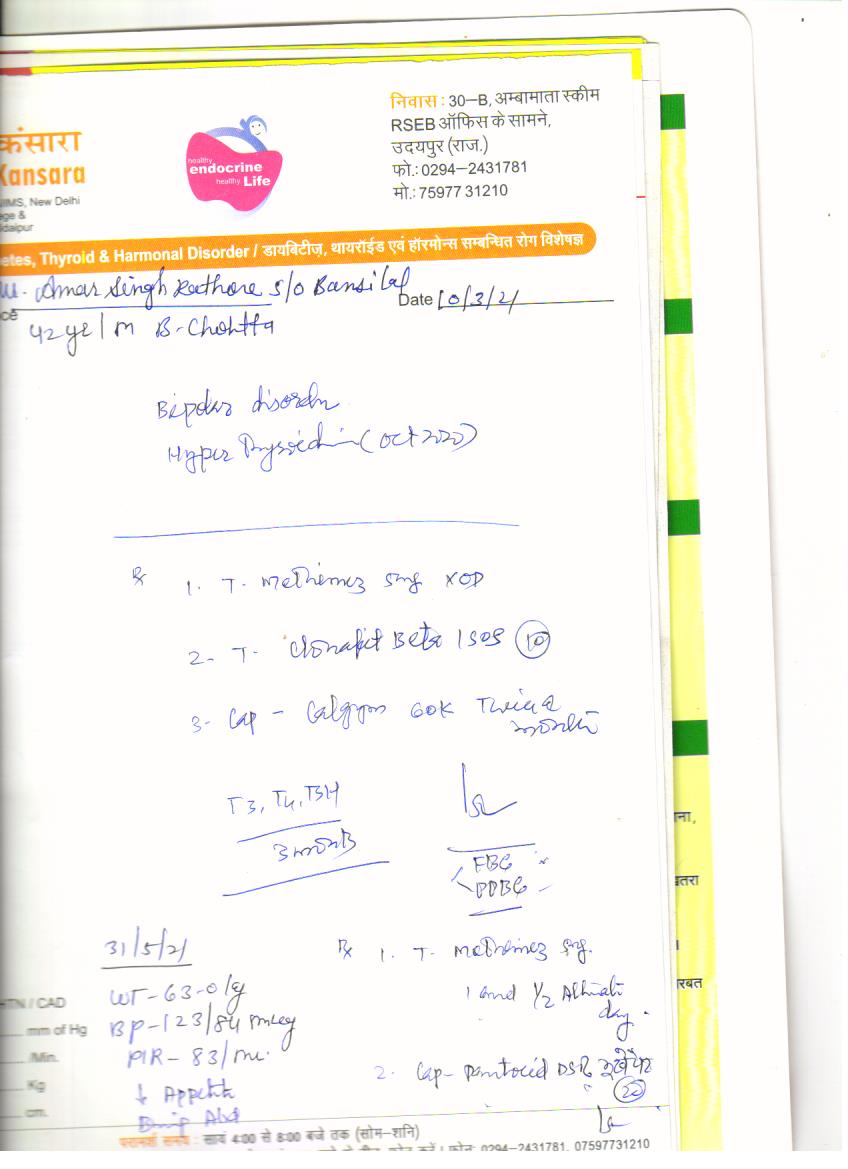 कंसारा
Kansara
AIIMS, New Delhi
ege &
daipur
healthy
endocrine
healthy Life
निवास : 30-B, अम्बामाता स्कीम
RSEB ऑफिस के सामने,
उदयपुर (राज.)
फो.: 0294-2431781
मो.: 75977 31210
etes, Thyroid & Harmonal Disorder / डायबिटीज़, थायरोईड एवं हॉरमोन्स सम्बन्धित रोग विशेषज्ञ
Amar Singh Rathore S/o Bansilal
Date 10/3/21
42 yr/m B-Chohtta
Bipolar disorder
Hyper thyroidism (oct 2020)
Rx 1. T. Methimez 5mg x OD
2- T- Clonafit Beta 1 SOS 10
3- Cap - 60K Twice a
month
T3, T4, TSH
3 month
FBG
PPBG
31/5/21
WT-63.0 kg
BP-123/84 mmHg
83/mi.
↓ Appetite
Rx 1. T- Methimez 5mg.
1 and 1/2 Alternate
day.
2. Cap- Pantocid DSR भूखे पेट
HTN / CAD
mm of Hg
/Min.
Kg
cm.
परामर्श समय : सायं 4:00 से 8:00 बजे तक (सोम-शनि)
फोन: 0294-2431781, 07597731210
ना,
तरा
रबत